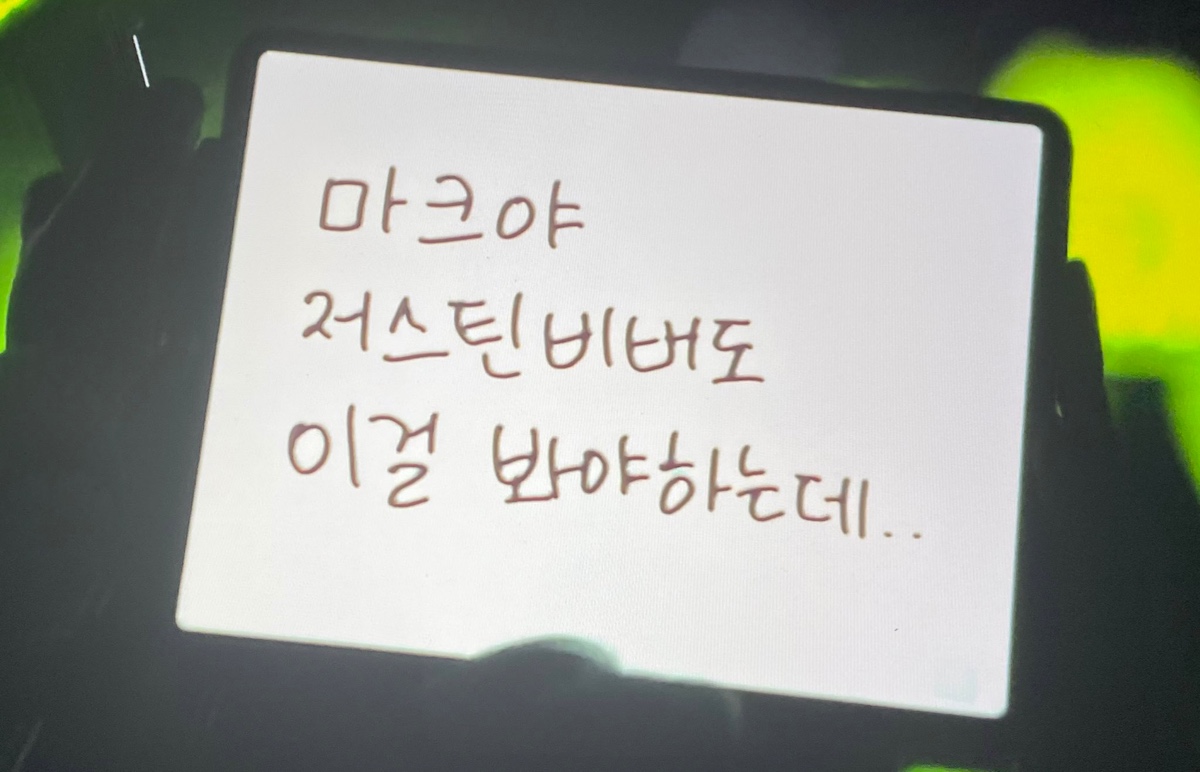 마크야
저스틴비버도
이걸 봐야하는데..